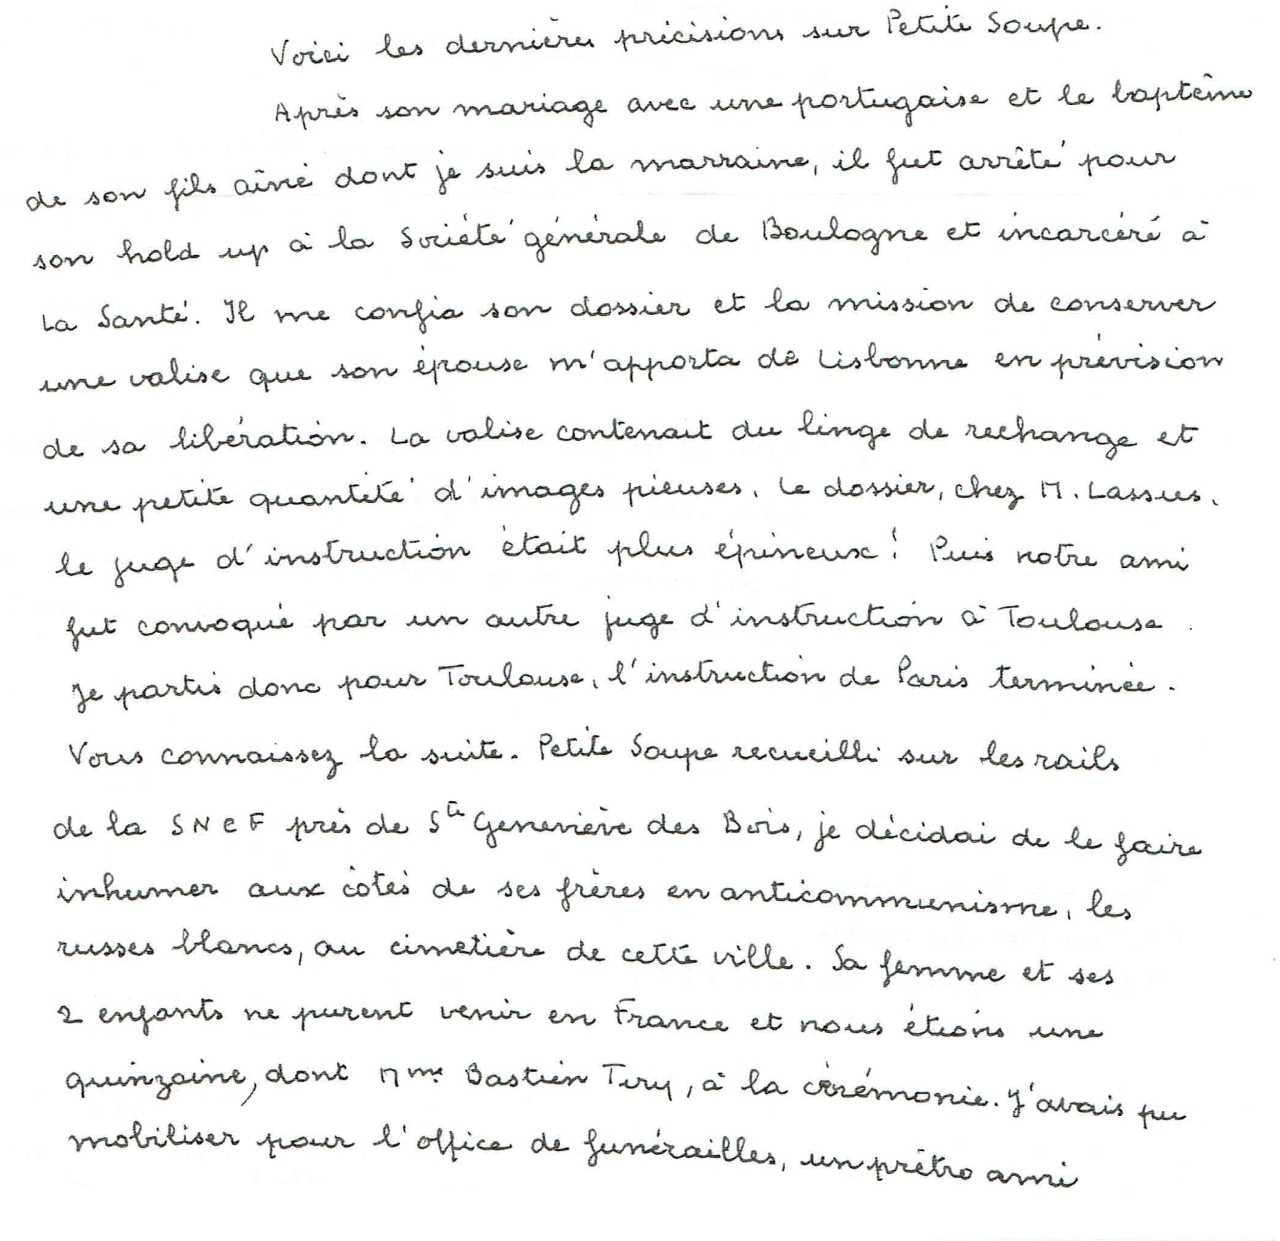 Voici les dernières précisions sur Petite Soupe.
Après son mariage avec une portugaise et le baptême
de son fils aîné dont je suis la marraine, il fut arrêté pour
son hold up à la Société générale de Boulogne et incarcéré à
La Santé. Il me confia son dossier et la mission de conserver
une valise que son épouse m'apporta de Lisbonne en prévision
de sa libération. La valise contenait du linge de rechange et
une petite quantité d'images pieuses. Le dossier, chez M. Lassus,
le juge d'instruction était plus épineux ! Puis notre ami
fut convoqué par un autre juge d'instruction à Toulouse.
Je partis donc pour Toulouse, l'instruction de Paris terminée.
Vous connaissez la suite. Petite Soupe recueilli sur les rails
de la SNCF près de Ste Geneviève des Bois, je décidai de le faire
inhumer aux côtés de ses frères en anticommunisme, les
russes blancs, au cimetière de cette ville. Sa femme et ses
2 enfants ne purent venir en France et nous étions une
quinzaine, dont Mme Bastien Tiry, à la cérémonie. J'avais pu
mobiliser pour l'office de funérailles, un prêtre ami